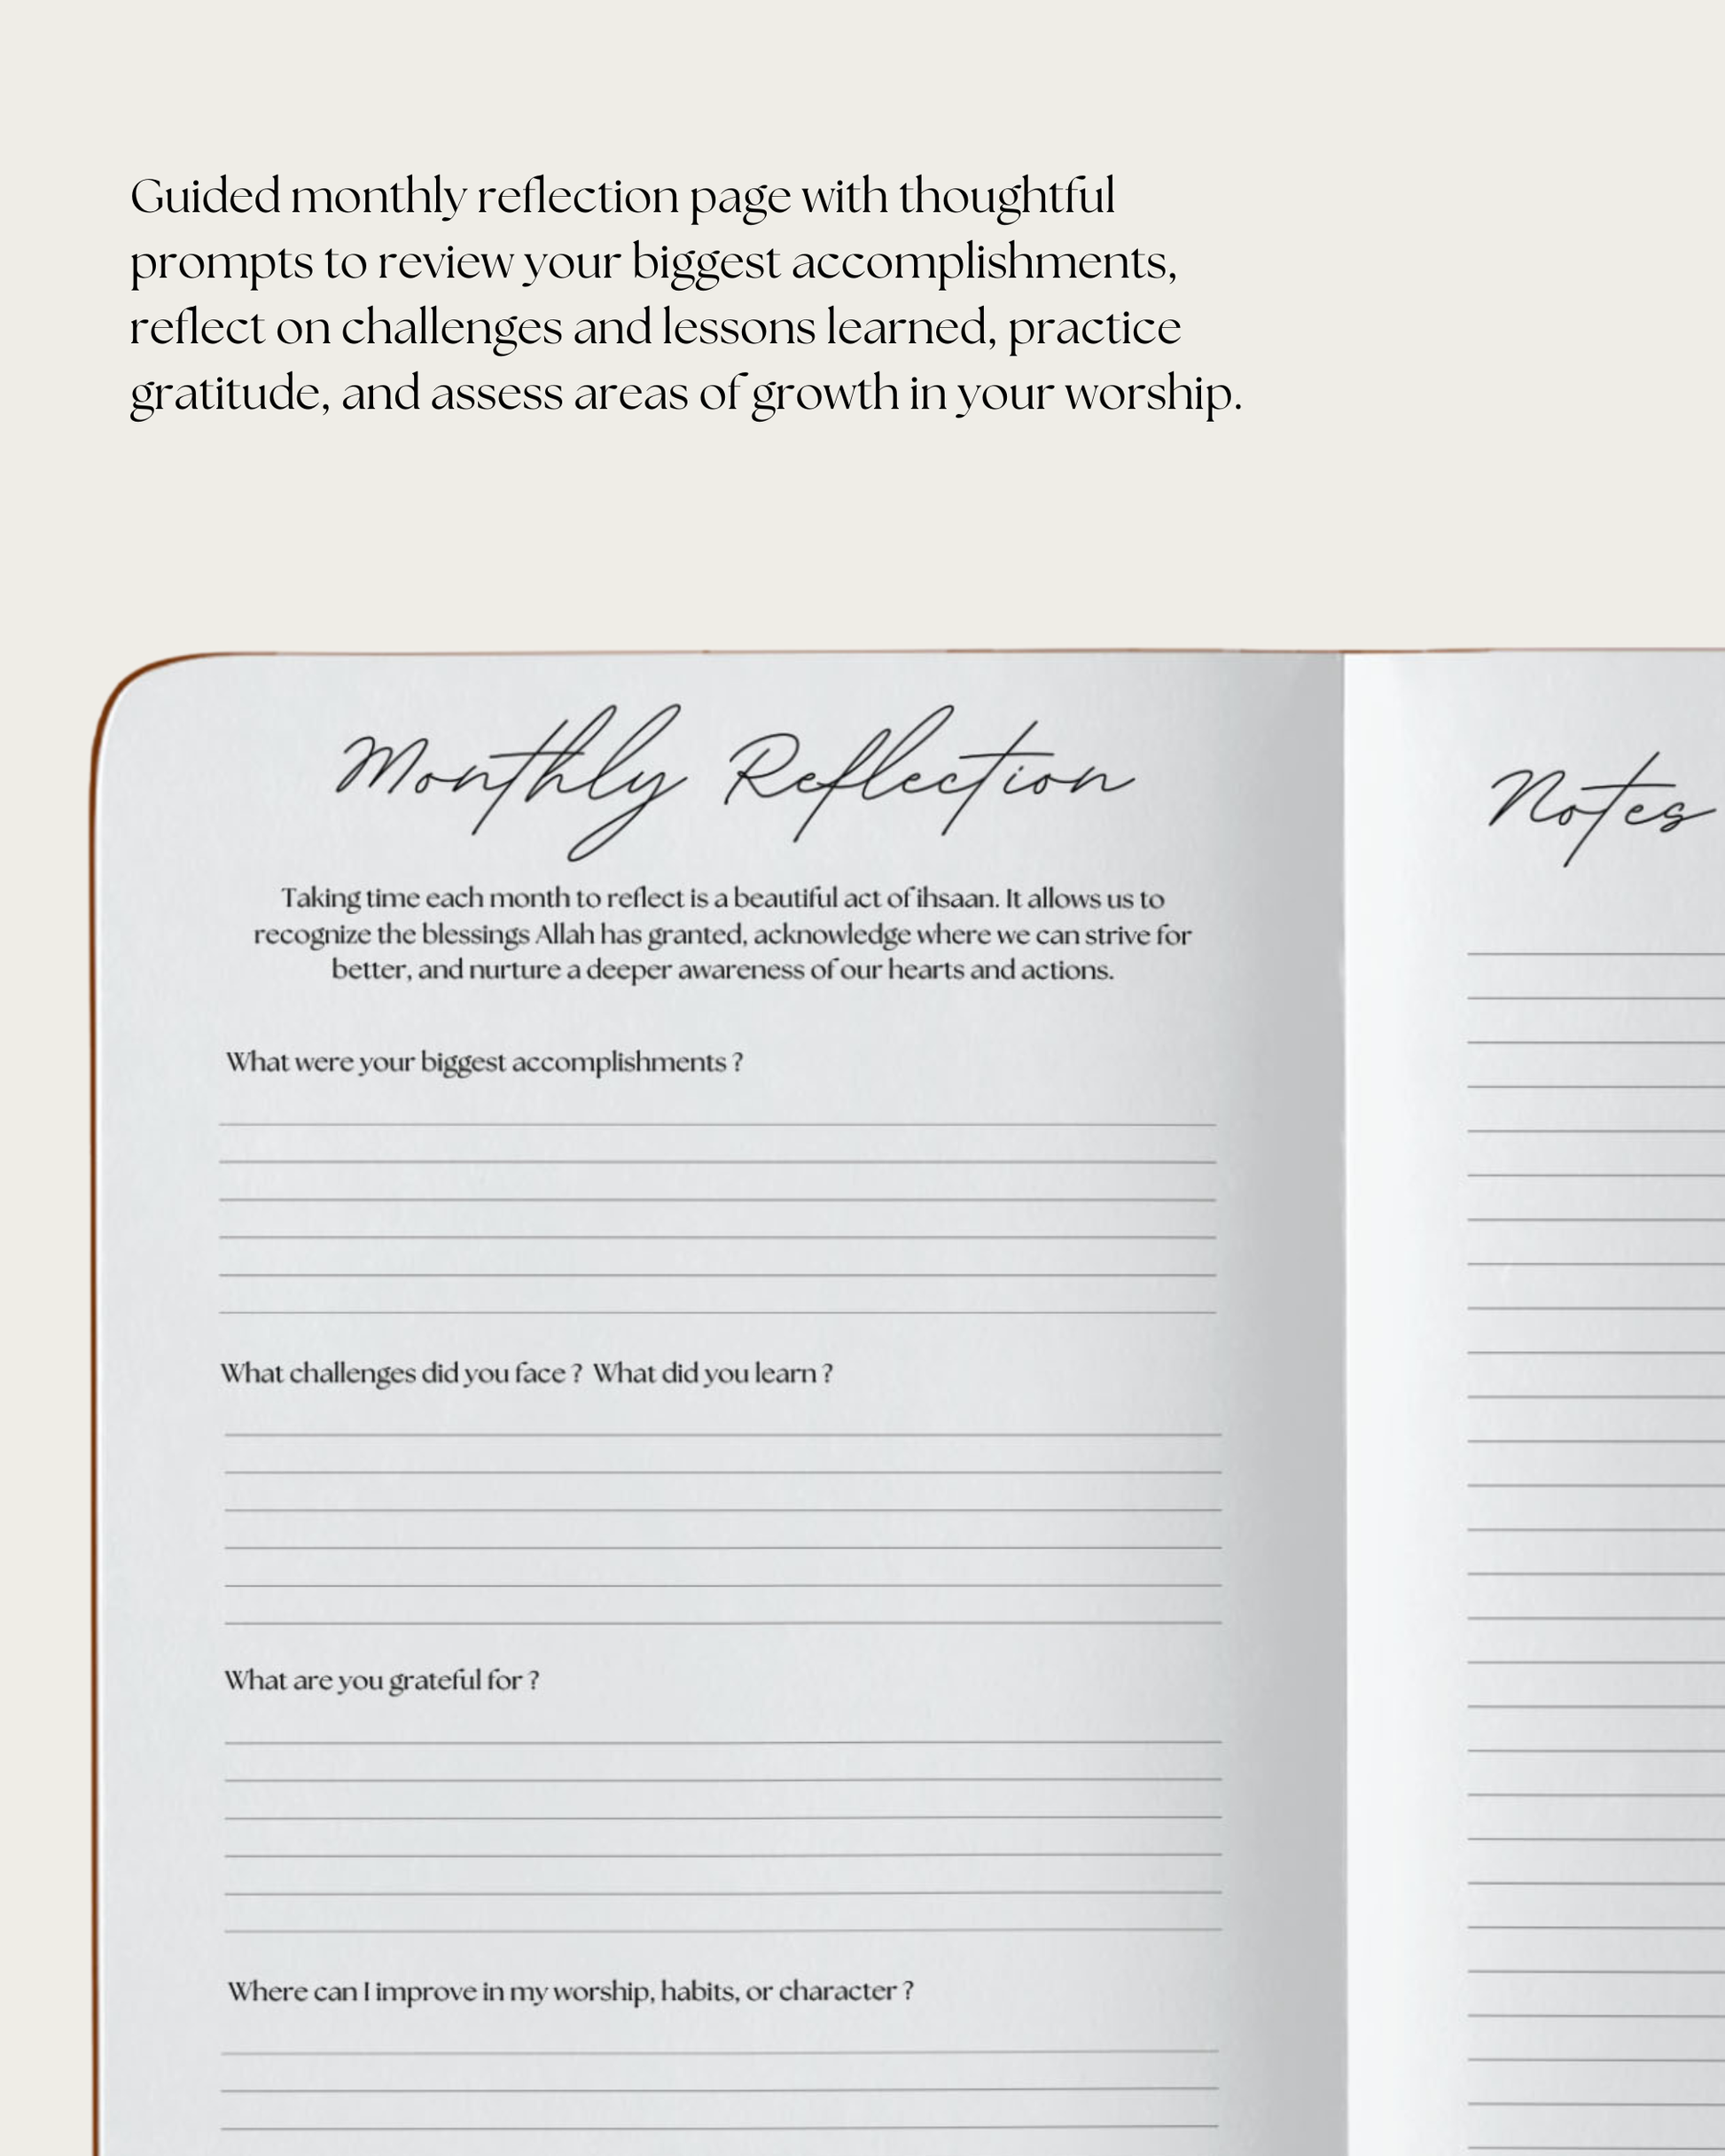 Guided monthly reflection page with thoughtful
prompts to review your biggest accomplishments,
reflect on challenges and lessons learned, practice
gratitude, and assess areas of growth in your worship.
Monthly Reflection
Taking time each month to reflect is a beautiful act of ihsaan. It allows us to
recognize the blessings Allah has granted, acknowledge where we can strive for
better, and nurture a deeper awareness of our hearts and actions.
What were your biggest accomplishments ?
What challenges did you face ? What did you learn ?
What are you grateful for ?
Where can I improve in my worship, habits, or character ?
Notes